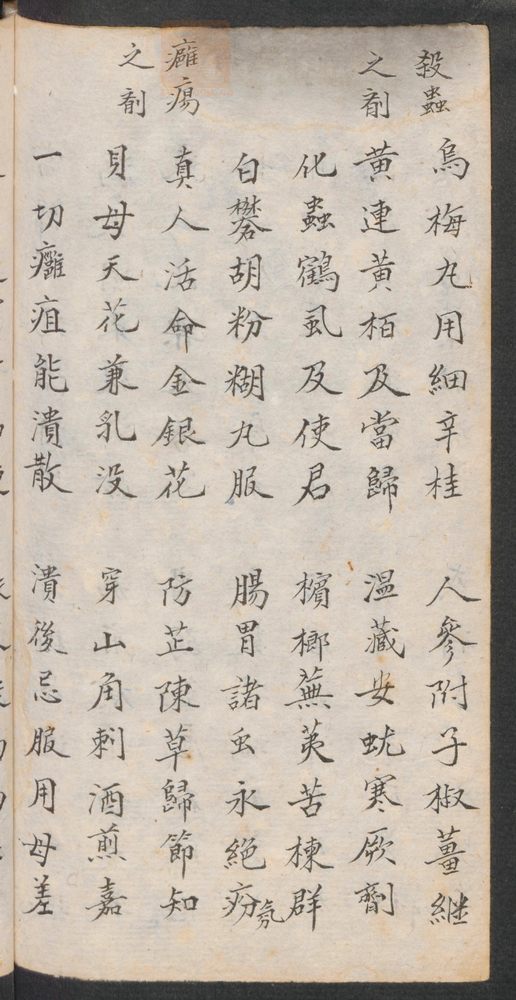 殺蟲
之劑
烏梅丸用細辛桂 人參附子椒薑継
黄連黄栢及當歸 溫藏安蚘寒厥劑
化蟲鶴虱及使君 檳榔蕪荑苦楝群
白礬胡粉糊丸服 腸胃諸虫永絕氛
癰瘍
之劑
真人活命金銀花 防芷陳草歸節知
貝母天花兼乳没 穿山角刺酒煎嘉
一切癰疽能潰散 潰後忌服用毋差